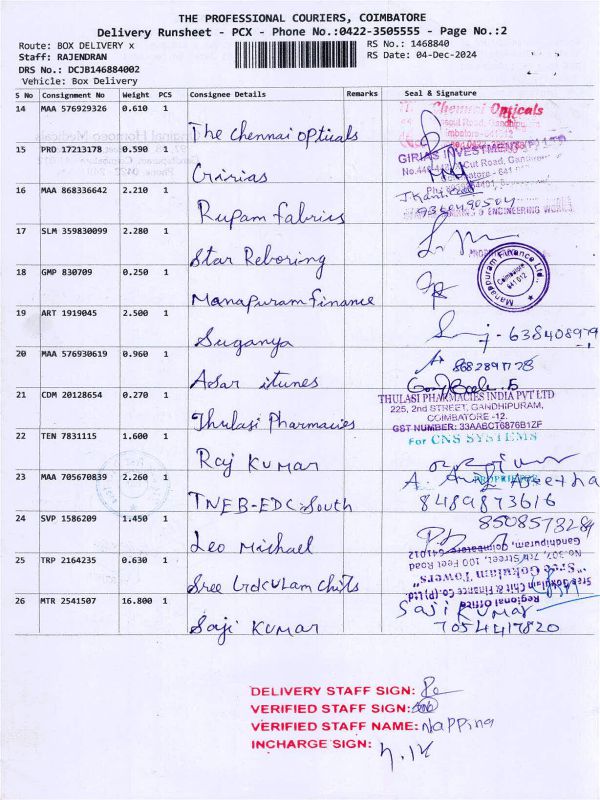 THE PROFESSIONAL COURIERS, COIMBATORE
Delivery Runsheet - PCX - Phone No.:0422-3505555 - Page No.:2
Route: BOX DELIVERY x
RS No.: 1468840
Staff: RAJENDRAN
RS Date: 04-Dec-2024
DRS No.: DCJB146884002
Vehicle: Box Delivery
S No Consignment No Weight PCS Consignee Details Remarks Seal & Signature
14 MAA 576929326 0.610 1 The Chennai opticals
Chennai Opticals
15 PRO 17213178 0.590 1 Giriias
GIRIAS INVESTMENT (P) LTD
16 MAA 868336642 2.210 1 Rupam fabrics
& ENGINEERING WORKS
17 SLM 359830099 2.280 1 Star Reboring
18 GMP 830709 0.250 1 Manapuram finance
Manappuram Finance Ltd.
Coimbatore
641 012
19 ART 1919045 2.500 1 Suganya
20 MAA 576930619 0.960 1 Adsar itunes
21 CDM 20128654 0.270 1 Thulasi Pharmacies
THULASI PHARMACIES INDIA PVT LTD
225, 2nd STREET, GANDHIPURAM,
COIMBATORE -12.
GST NUMBER: 33AABCT6876B1ZF
22 TEN 7831115 1.600 1 Raj Kumar
For CNS SYSTEMS
PROPRIETOR
23 MAA 705670839 2.260 1 TNEB-EDC South
8489873616
24 SVP 1586209 1.450 1 Leo Michael
25 TRP 2164235 0.630 1 Sree Gokulam chits
Gandhipuram, Coimbatore-641012
No.307, 7th Street, 100 Feet Road
"Sree Gokulam Towers"
Sree Gokulam Chit & Finance Co.(P)Ltd.
Regional Office
26 MTR 2541507 16.800 1 Saji Kumar
Saji Kumar
7054417820
DELIVERY STAFF SIGN:
VERIFIED STAFF SIGN:
VERIFIED STAFF NAME: Napping
INCHARGE SIGN: